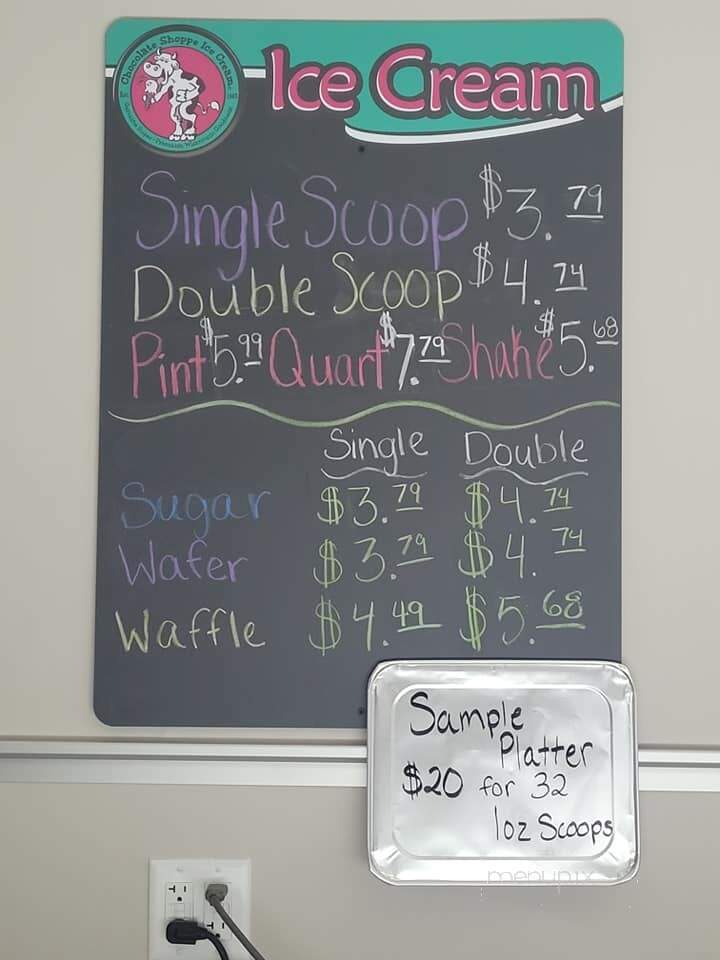 Chocolate Shoppe Ice Cream
Ice Cream
Single Scoop $3.79
Double Scoop $4.74
Pint $5.99 Quart $7.79 Shake $5.68
Single Double
Sugar $3.79 $4.74
Wafer $3.79 $4.74
Waffle $4.49 $5.68
Sample
Platter
$20 for 32
1oz Scoops
menupix